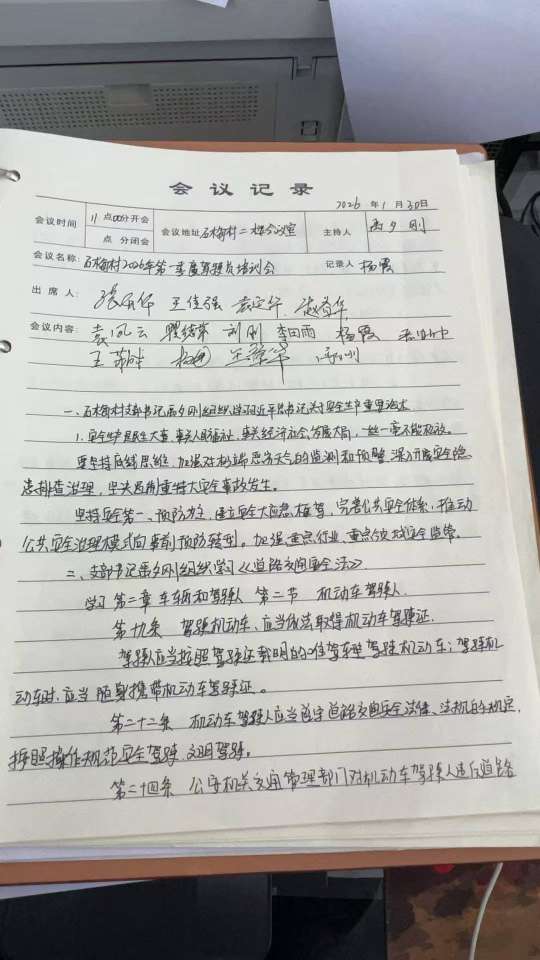 会议记录
2026年1月30日
会议时间 11点00分开会 点 分闭会 会议地址 石梅村二楼会议室 主持人 刚
会议名称: 石梅村2026年第一季度驾驶员培训会 记录人 杨霞
出席人: 王佳强
会议内容: 袁凤云 刘刚 李田雨 杨霞
王
一、石梅村支部书记 刚组织学习近平总书记关于安全生产重要论述
1.安全生产是民生大事,事关人民福祉,事关经济社会发展大局,一丝一毫不能放松。
要坚持底线思维,加强对极端恶劣天气的监测和预警,深入开展安全隐
患排查治理,坚决遏制重特大安全事故发生。
坚持安全第一、预防为主,建立安全大应急框架,完善公共安全体系,推动
公共安全治理模式向事前预防转型。加强重点行业、重点领域安全监管。
二、支部书记 刚组织学习《道路交通安全法》
学习 第二章 车辆和驾驶人 第二节 机动车驾驶人
第十九条 驾驶机动车,应当依法取得机动车驾驶证.
驾驶人应当按照驾驶证载明的准驾车型驾驶机动车;驾驶机
动车时,应当随身携带机动车驾驶证。
第二十二条 机动车驾驶人应当遵守道路交通安全法律、法规的规定,
按照操作规范安全驾驶、文明驾驶。
第二十四条 公安机关交通管理部门对机动车驾驶人违反道路